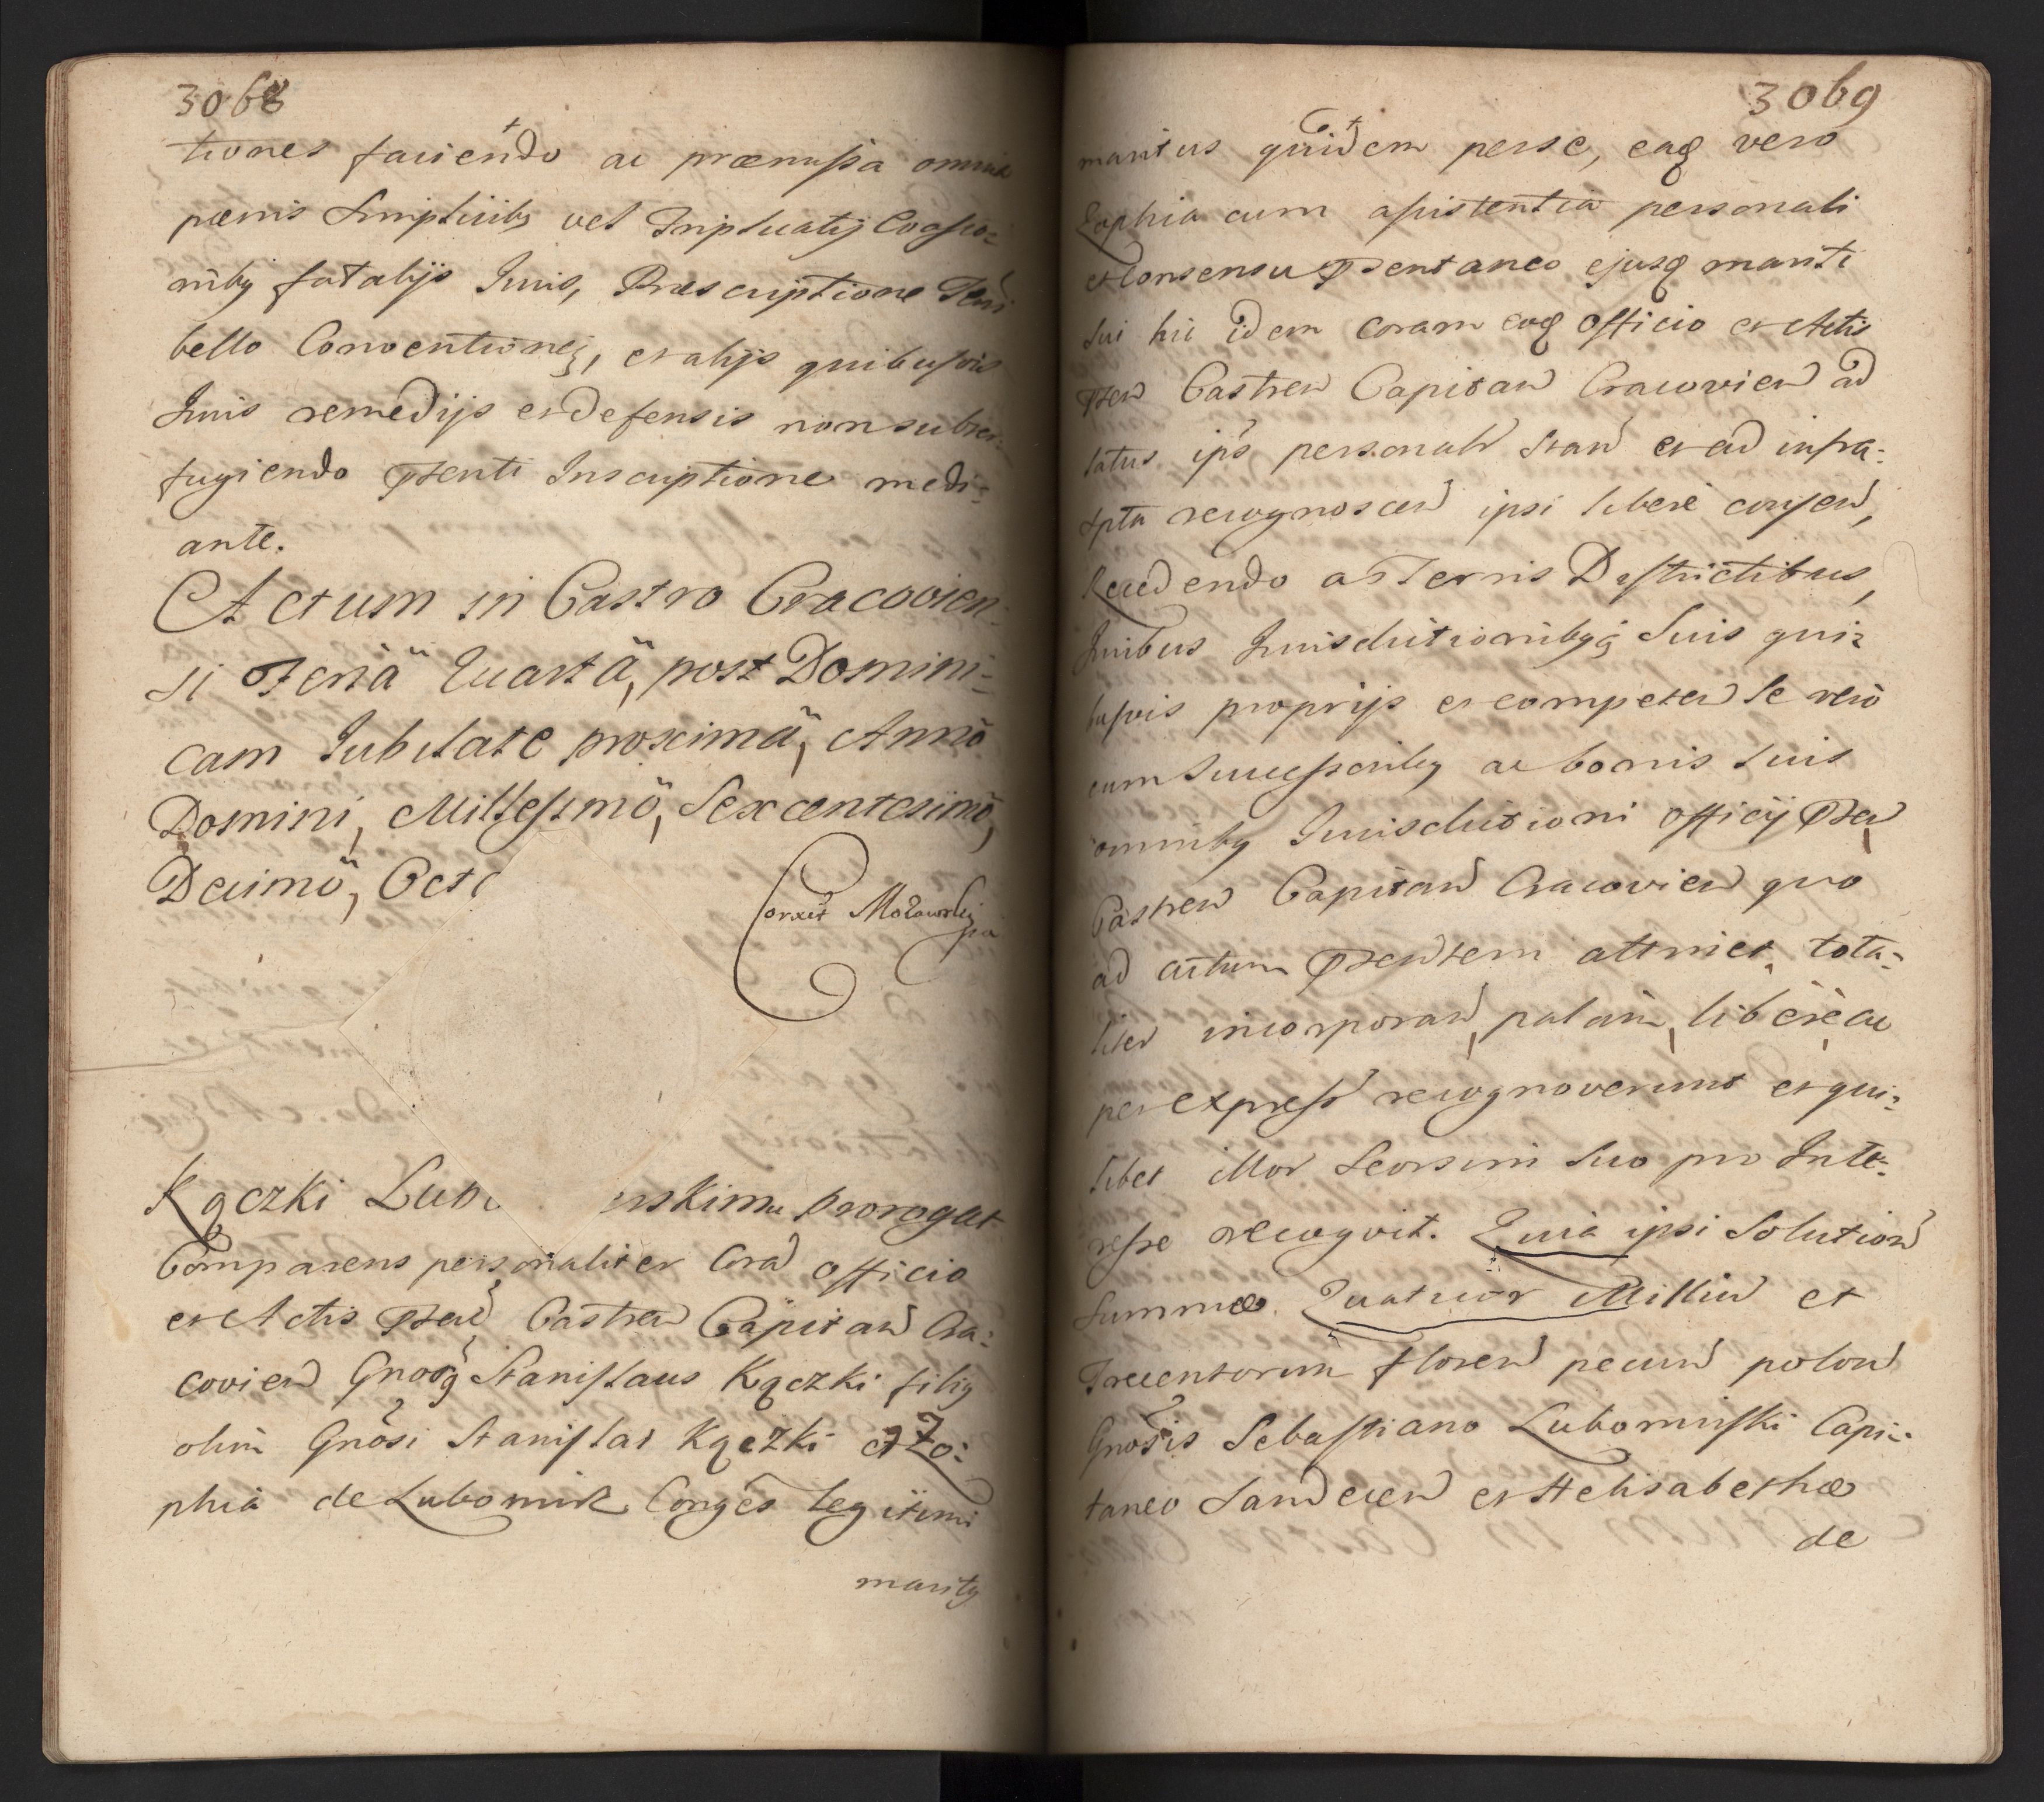 3068
tiones faciendo ac præmissa omnia
pœnis simplicibꝫ vel Triplicatis Coessio:
nibꝫ fatalijs Juris, Præscriptione Terri
bello Conventione, et alijs quibusvis
Juris remedijs et defensis non subter:
fugiendo Pnti Inscriptione medi:
ante.
Actum in Castro Cracovien:
si Feriâ Quartâ, post Domini:
cam Jubilate proximâ, Annô
Domini, Millesimô, Sexcentesimô,
Decimô, Oct
Corexit
Kączki Lub erskimu prorogat
Comparens personaliter Corã officio
et Actis Pnãe Castreñ Capitañ Cra:
covieñ Gnosꝰ Stanislaus Kączki filiꝰ
olim Gnõsi Stanislai Kączki et Zo:
phia de Lubomirz Conges legitimi
maritꝰ
3069
maritus quidem perse, eaqꝫ vero
Zophia cum assistentia personali
et Consensu Pentaneo ejusqꝫ mariti
Sui hic idem coram eoqꝫ officio et Actis
Pñ Castreñ Capitañ Cracovieñ ad
latus ips personalr stañ et ad infra:
spta recognosceñ ipsi liberè conseñ,
Recedendo a Terris Districtibus,
Juribus Jurisdictionibꝫqꝫ Suis qui:
busvis proprijs et competeñ Se verò
cum Successoribꝫ ac bonis suis
omnibꝫ Jurisdictioni officij Pñ
Castreñ Capitañ Cracovieñ quo
ad actum Pñtem attinet, tota:
liter incorporañ, palàm, liberè ac
per expressũ recognoverunt et qui:
libet illor Seorsim suo pro Inte:
resse recognovit. Quia ipsi Solutioñ
Summæ Quatuor Milliũ et
Trecentorum floreñ pecuñ poloñ
Gnosis Sebastiano Lubomirski Capi:
taneo Sandeceñ et Helisabethæ
de